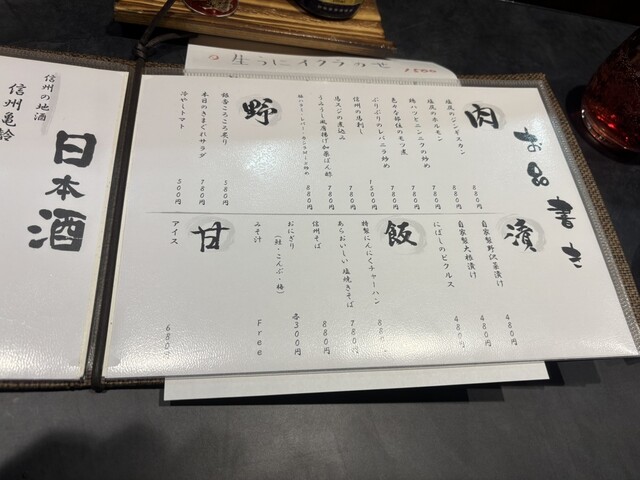 生うにイクラのせ
1500
お品書き
肉
塩流のジンギスカン 880円
塩流のホルモン 880円
鶏ハツとニンニクの炒め 780円
色々な部位のモツ煮 780円
ぷりぷりのレバニラ炒め 780円
信州の馬刺し 1500円
馬スジの煮込み 780円
780円
880円
野
銀杏ころころ炙り 580円
本日のきまぐれサラダ 780円
冷やしトマト 500円
漬
自家製野沢菜漬け 480円
自家製大根漬け 480円
にぼしのピクルス 480円
飯
特製にんにくチャーハン 880円
あらおいしい塩焼きそば 780円
信州そば 880円
おにぎり 各300円
(鮭・こんぶ・梅)
みそ汁 Free
甘
アイス 680円
日本酒
信州の地酒
信州亀齢